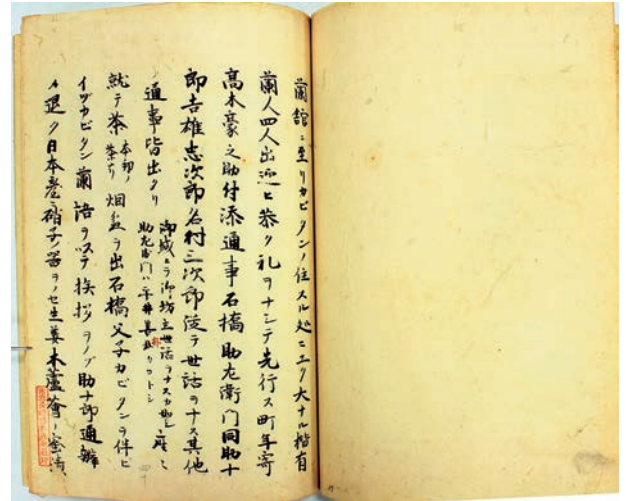 蘭館ニ至リカピタンノ住スル処ニ工ク大ナル楷有
蘭人四人出迎ヒ恭ク礼ヲナシテ先行ス町年寄
高木豪之助付添通事石橋助左衛門同助十
郎吉雄忠次郎名村三次郎従テ世話ヲナス其他
ノ通事皆出タリ
御城ニテ御坊主世話ヲナスカ如シ
助左衛門ハ平井善
リコトシ
座ニ
就テ茶
本邦ノ
茶ナリ
烟盆ヲ出石橋父子カピタンヲ伴ヒ
イツカピタン蘭語ヲステ挨拶ヲノブ助十郎通辨
退ク日本臺ニ硝子ノ器ヲノセ生姜木蘆薈ノ蜜漬